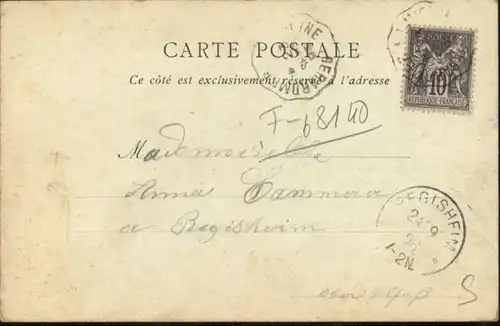 CARTE POSTALE
Ce côté est exclusivement réservé à l'adresse
GERARDMER
POSTE
10
REPUBLIQUE FRANÇAISE
F-68140
Mademoiselle
à Regisheim
REGISHEIM
24 9
1-2N.